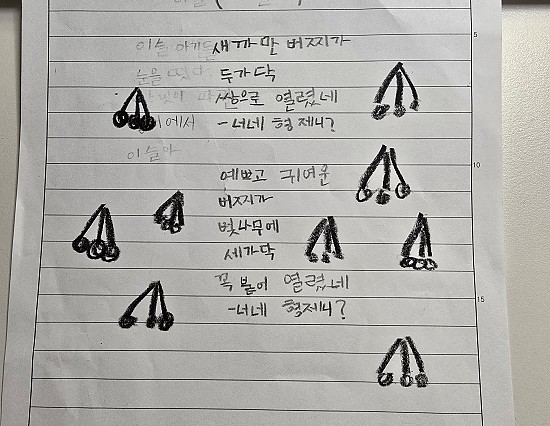 새까만 버찌가
두가닥
쌍으로 열렸네
-너네 형제니?
예쁘고 귀여운
버찌가
벚나무에
세가닥
꼭 붙어 열렸네
-너네 형제니?
5
10
15